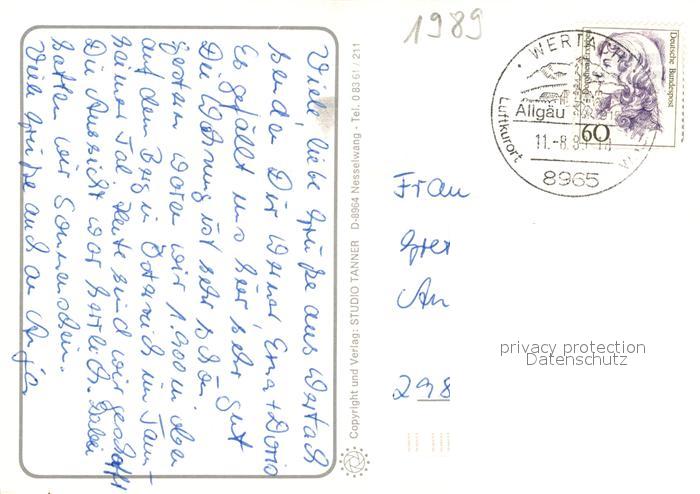 Viele liebe Grüße aus Wertach
senden Dir Werner, Erna + Doris
Es gefällt uns hier sehr gut
Die Wohnung ist sehr schön
Gestern waren wir 1.900 m über
auf dem Berg in Österreich im Tann-
heimer Tal. Heute sind wir geschafft
Die Aussicht war herrlich. Dabei
hatten wir Sonnenschein.
Viele Grüße auch an Anja
Copyright und Verlag: STUDIO TANNER D-8964 Nesselwang - Tel. 0 83 61 / 211
1989
WERTACH
Allgäu
Luftkurort
11.-8.89
8965
Deutsche Bundespost
60
Frau
Gre
An
298
privacy protection
Datenschutz